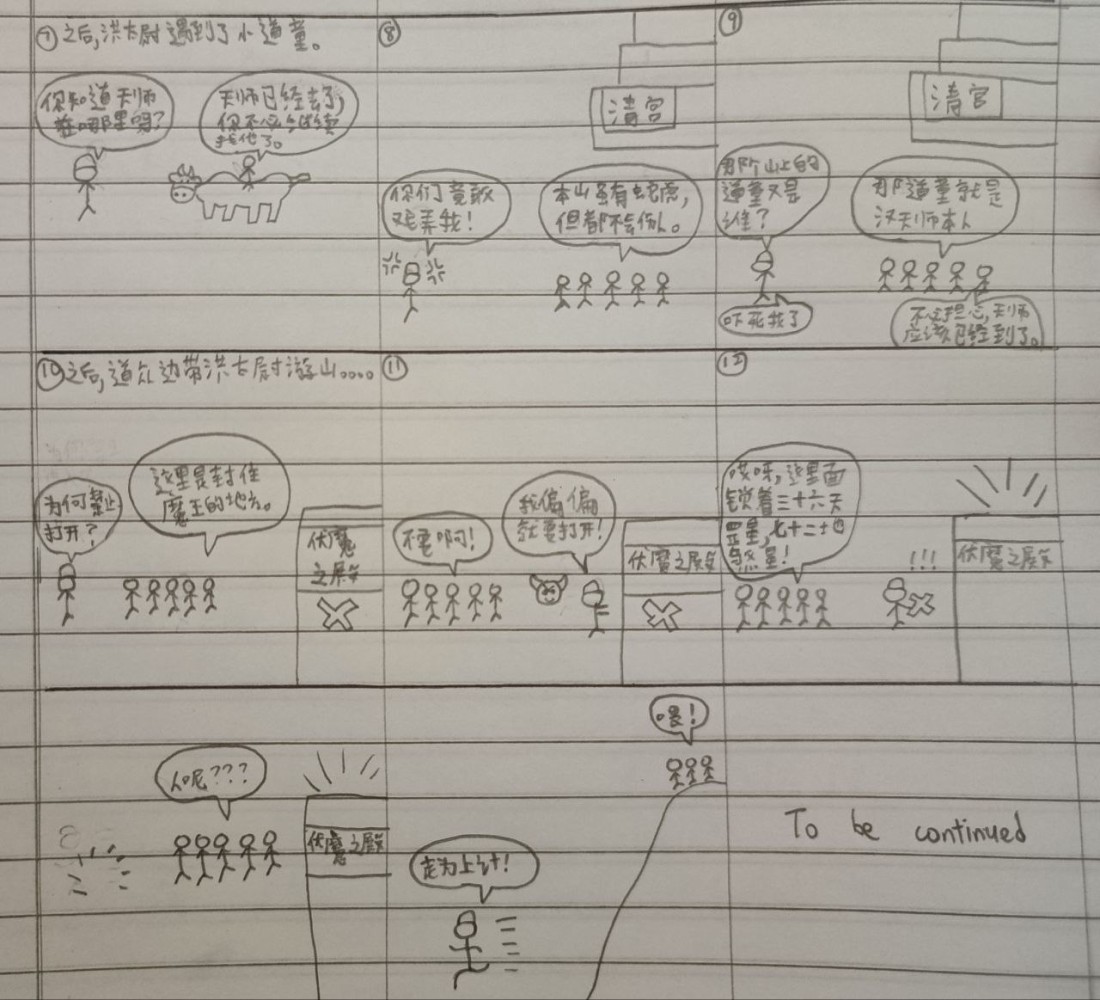 ⑦之后,洪太尉遇到了小道童。
你知道天师
在哪里吗?
天师已经去了,
你不必继续
找他了。
⑧
清宫
你们竟敢
戏弄我!
本山虽有蛇虎,
但都不会伤人。
⑨
清宫
那个山上的
道童又是
谁?
吓死我了
那道童就是
汉天师本人
不必担心,天师
应该已经到了。
⑩之后,道众边带洪太尉游山。。。。
为何禁止
打开?
这里是封住
魔王的地方。
伏魔
之殿
⑪
不要啊!
我偏偏
就要打开!
伏魔之殿
⑫
哎呀,这里面
锁着三十六天
罡星,七十二地
煞星!
!!!
伏魔之殿
人呢???
伏魔之殿
走为上计!
喂!
To be continued